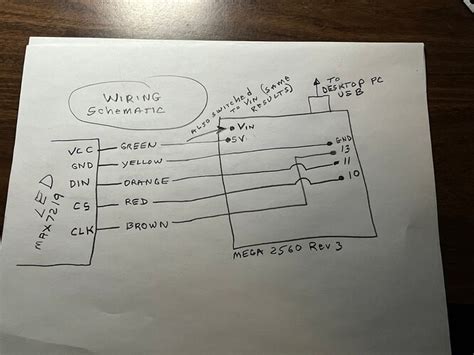 WIRING
Schematic
ALSO SWITCHED (SAME
TO VIN RESULTS)
TO
DESKTOP PC
USB
LED
MAX7219
VCC GREEN
GND YELLOW
DIN ORANGE
CS RED
CLK BROWN
VIN
5V
GND
13
11
10
MEGA 2560 Rev 3